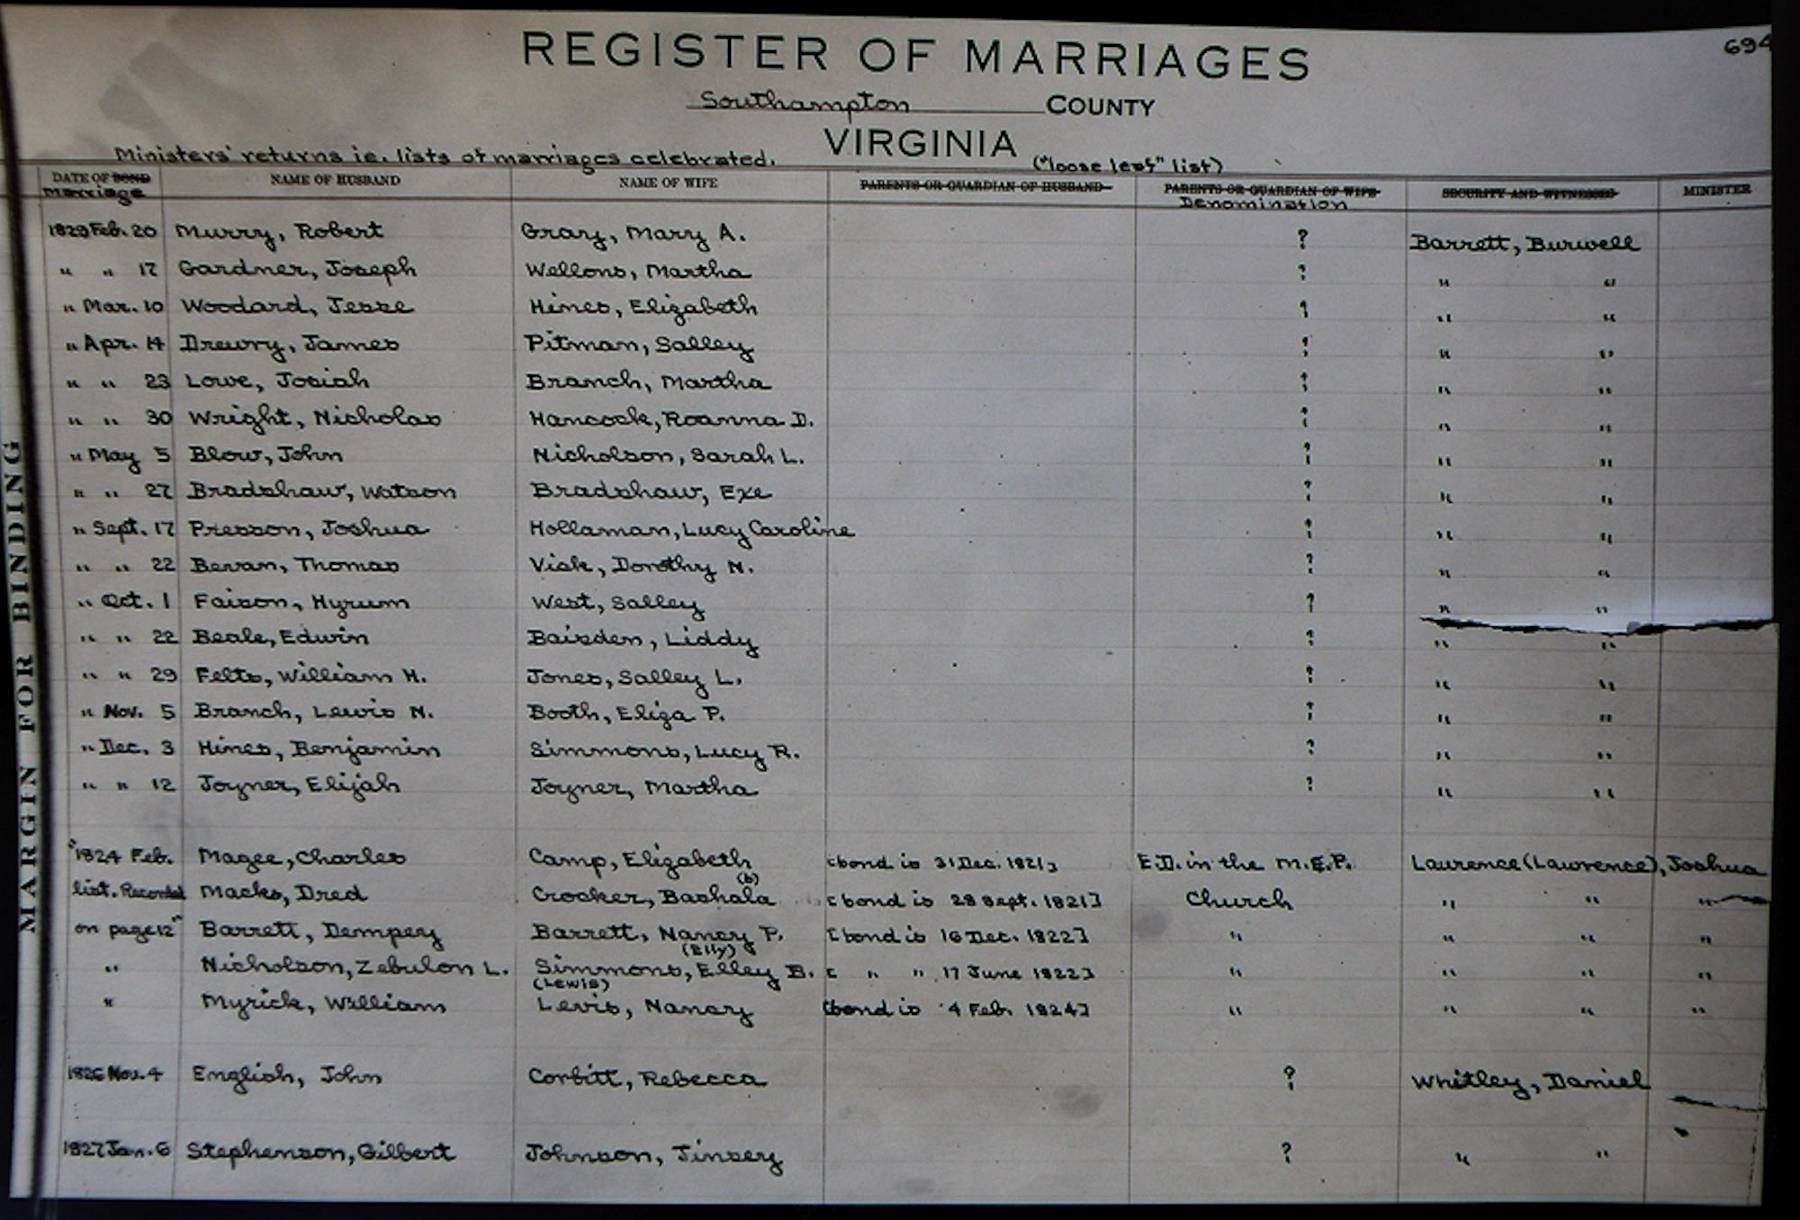 REGISTER OF MARRIAGES 694
Southampton COUNTY
VIRGINIA
Ministers' returns i.e. lists of marriages celebrated. ("loose leaf" list)
DATE OF BOND NAME OF HUSBAND NAME OF WIFE PARENTS OR GUARDIAN OF HUSBAND PARENTS OR GUARDIAN OF WIFE SECURITY AND WITNESSES MINISTER
Marriage Denomination
1829 Feb. 20 Murry, Robert Gray, Mary A. ? Barrett, Burwell
" " 17 Gardner, Joseph Wellons, Martha ? " "
" Mar. 10 Woodard, Jesse Hines, Elizabeth ? " "
" Apr. 14 Drewry, James Pitman, Salley ? " "
" " 23 Lowe, Josiah Branch, Martha ? " "
" " 30 Wright, Nicholas Hancock, Roanna D. ? " "
" May 5 Blow, John Nicholson, Sarah L. ? " "
" " 27 Bradshaw, Watson Bradshaw, Exe ? " "
" Sept. 17 Presson, Joshua Hollaman, Lucy Caroline ? " "
" " 22 Bevan, Thomas Vick, Dorothy N. ? " "
" Oct. 1 Faison, Hyrum West, Salley ? " "
" " 22 Beale, Edwin Baisden, Liddy ? " "
" " 29 Felts, William H. Jones, Salley L. ? " "
" Nov. 5 Branch, Lewis N. Booth, Eliza P. ? " "
" Dec. 3 Hines, Benjamin Simmons, Lucy R. ? " "
" " 12 Joyner, Elijah Joyner, Martha ? " "
"1824 Feb. Magee, Charles Camp, Elizabeth [bond is 31 Dec. 1821] E.D. in the M.E.P. Laurence (Lawrence), Joshua
(b)
list. Recorded Macks, Dred Crocker, Bashala [bond is 28 Sept. 1821] Church " " "
on page 12" Barrett, Dempey Barrett, Nancy P. [bond is 16 Dec. 1822] " " " "
(Elly)
" Nicholson, Zebulon L. Simmons, Elley B. [ " " 17 June 1822] " " " "
(Lewis)
" Myrick, William Levis, Nancy [bond is 4 Feb. 1824] " " " "
1826 Nov. 4 English, John Corbitt, Rebecca ? Whitley, Daniel
1827 Jan. 6 Stephenson, Gilbert Johnson, Tinsey ? " "
MARGIN FOR BINDING